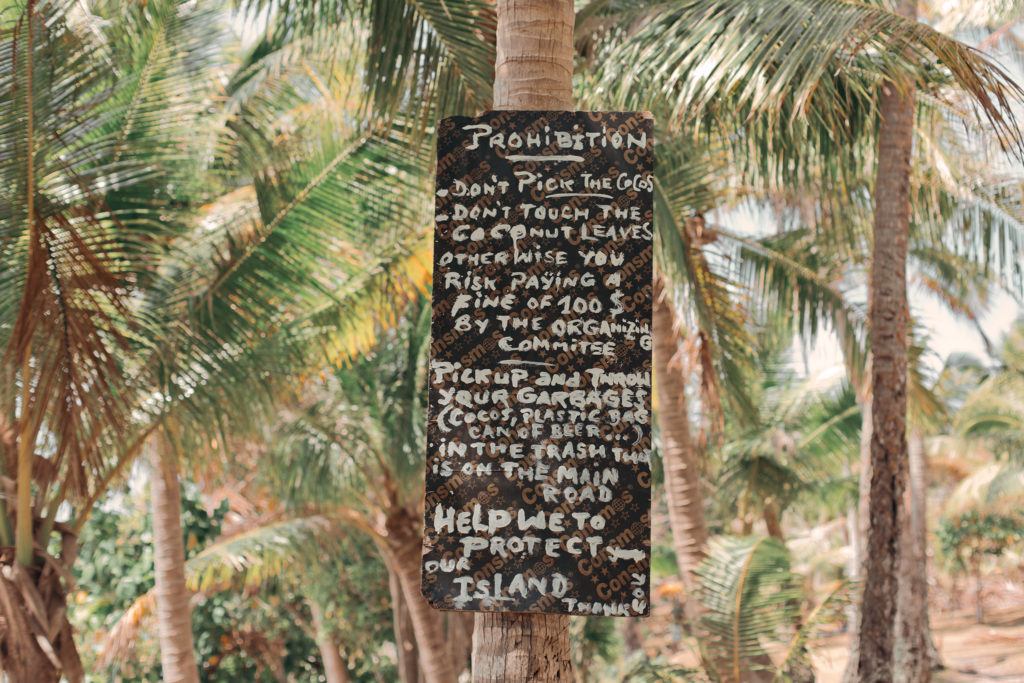 PROHIBITION
- DON'T PICK THE COCOS
- DON'T TOUCH THE
COCONUT LEAVES
OTHERWISE YOU
RISK PAYING A
FINE OF 100 $
BY THE ORGANIZING
COMMITSE
PICKUP and THROW
YOUR GARBAGES
(COCOS, PLASTIC BAG
CAN OF BEER...)
IN THE TRASH THAT
IS ON THE MAIN
ROAD
HELP WE TO
PROTECT
OUR
ISLAND
THANK YOU